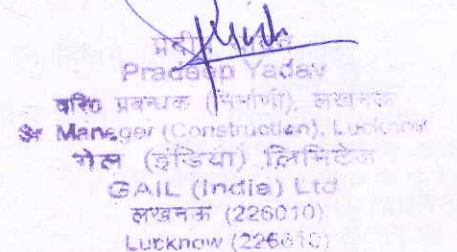 प्रदीप यादव
Pradeep Yadav
वरि० प्रबन्धक (निर्माणी), लखनऊ
Sr Manager (Construction), Lucknow
गेल (इंडिया) लिमिटेड
GAIL (India) Ltd
लखनऊ (226010)
Lucknow (226010)